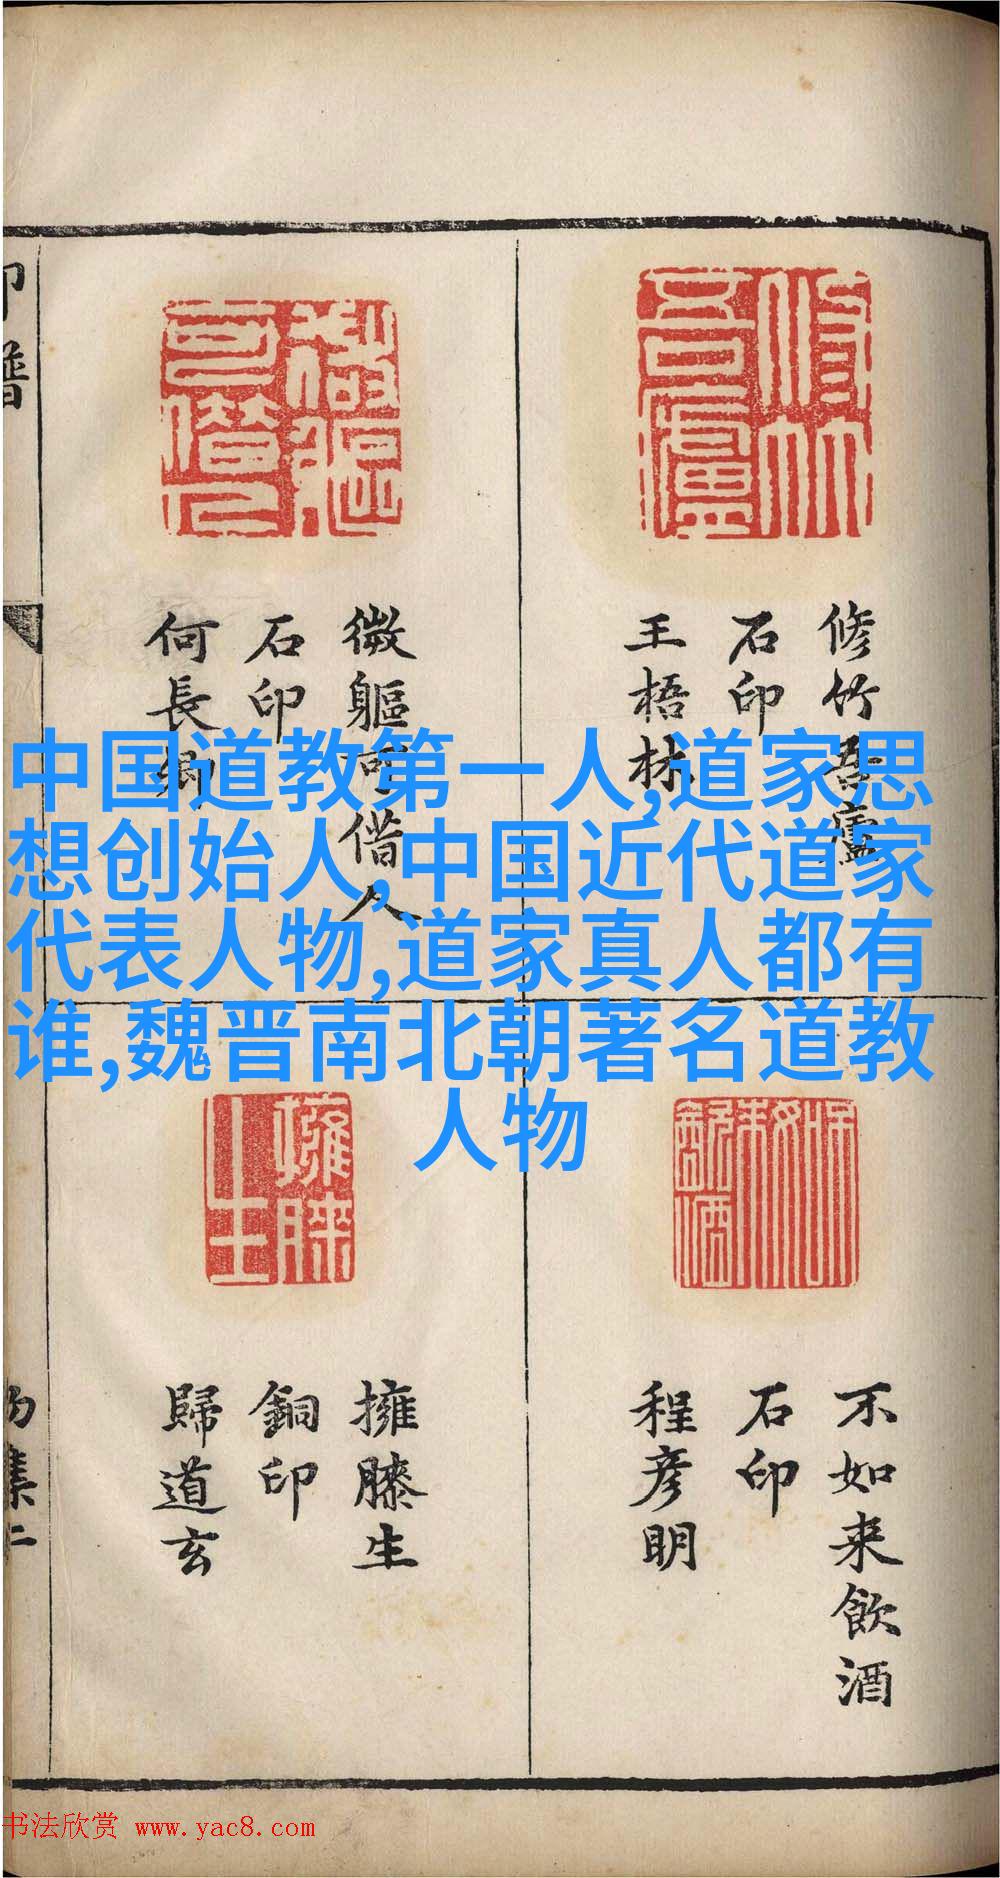 修竹吾廬
石印
王梧林
微軀可借人
石印
何長卿
中国道教第一人,道家思
想创始人,中国近代道家
代表人物,道家真人都有
谁,魏晋南北朝著名道教
人物
不如来飲酒
石印
程彦明
擁膝生
銅印
歸道玄
印譜
书法欣赏 www.yac8.com